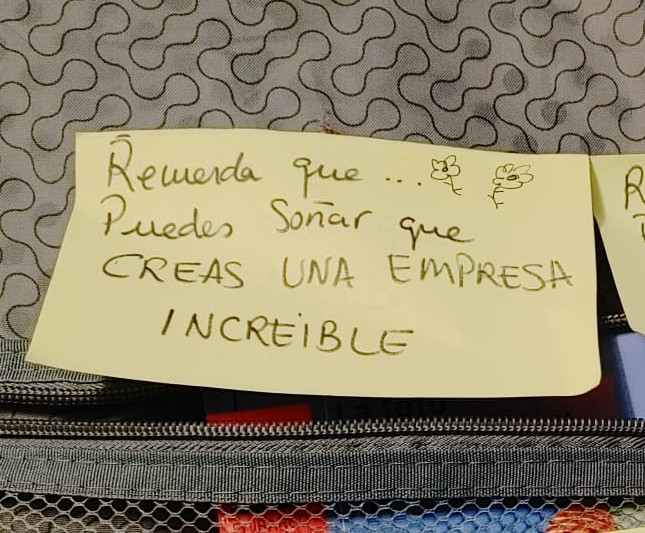 Recuerda que ...
Puedes Soñar que
CREAS UNA EMPRESA
INCREiBLE
R